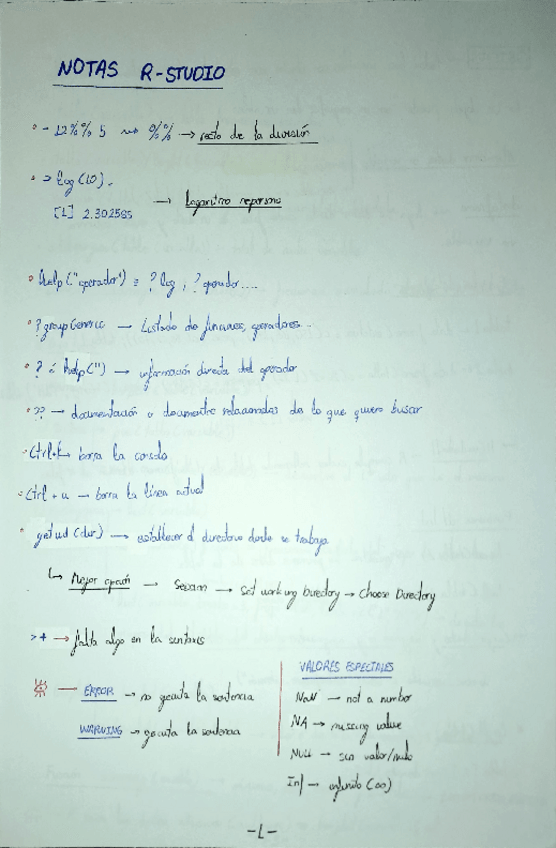 NOTAS R-STUDIO
- 12%% 5 → %% → resto de la división
> log(10).
[1] 2.302585 → Logaritmo neperiano
help("operador") = ?log ; ?operador....
?groupGeneric → Listado de funciones, operadores..
? ó help("") → información directa del operador
?? → documentación o documentos relacionados de lo que quiero buscar
Ctrl+L → borra la consola
Ctrl + u → borra la línea actual
getwd(dir) → establecer el directorio donde se trabaja
↳ Mejor opción → Session → Set working Directory → Choose Directory
> + → falta algo en la sentencia
ERROR → no ejecuta la sentencia
WARNING → ejecuta la sentencia
VALORES ESPECIALES
NaN → not a number
NA → missing value
NULL → sin valor/nulo
Inf → infinito (∞)
-1-